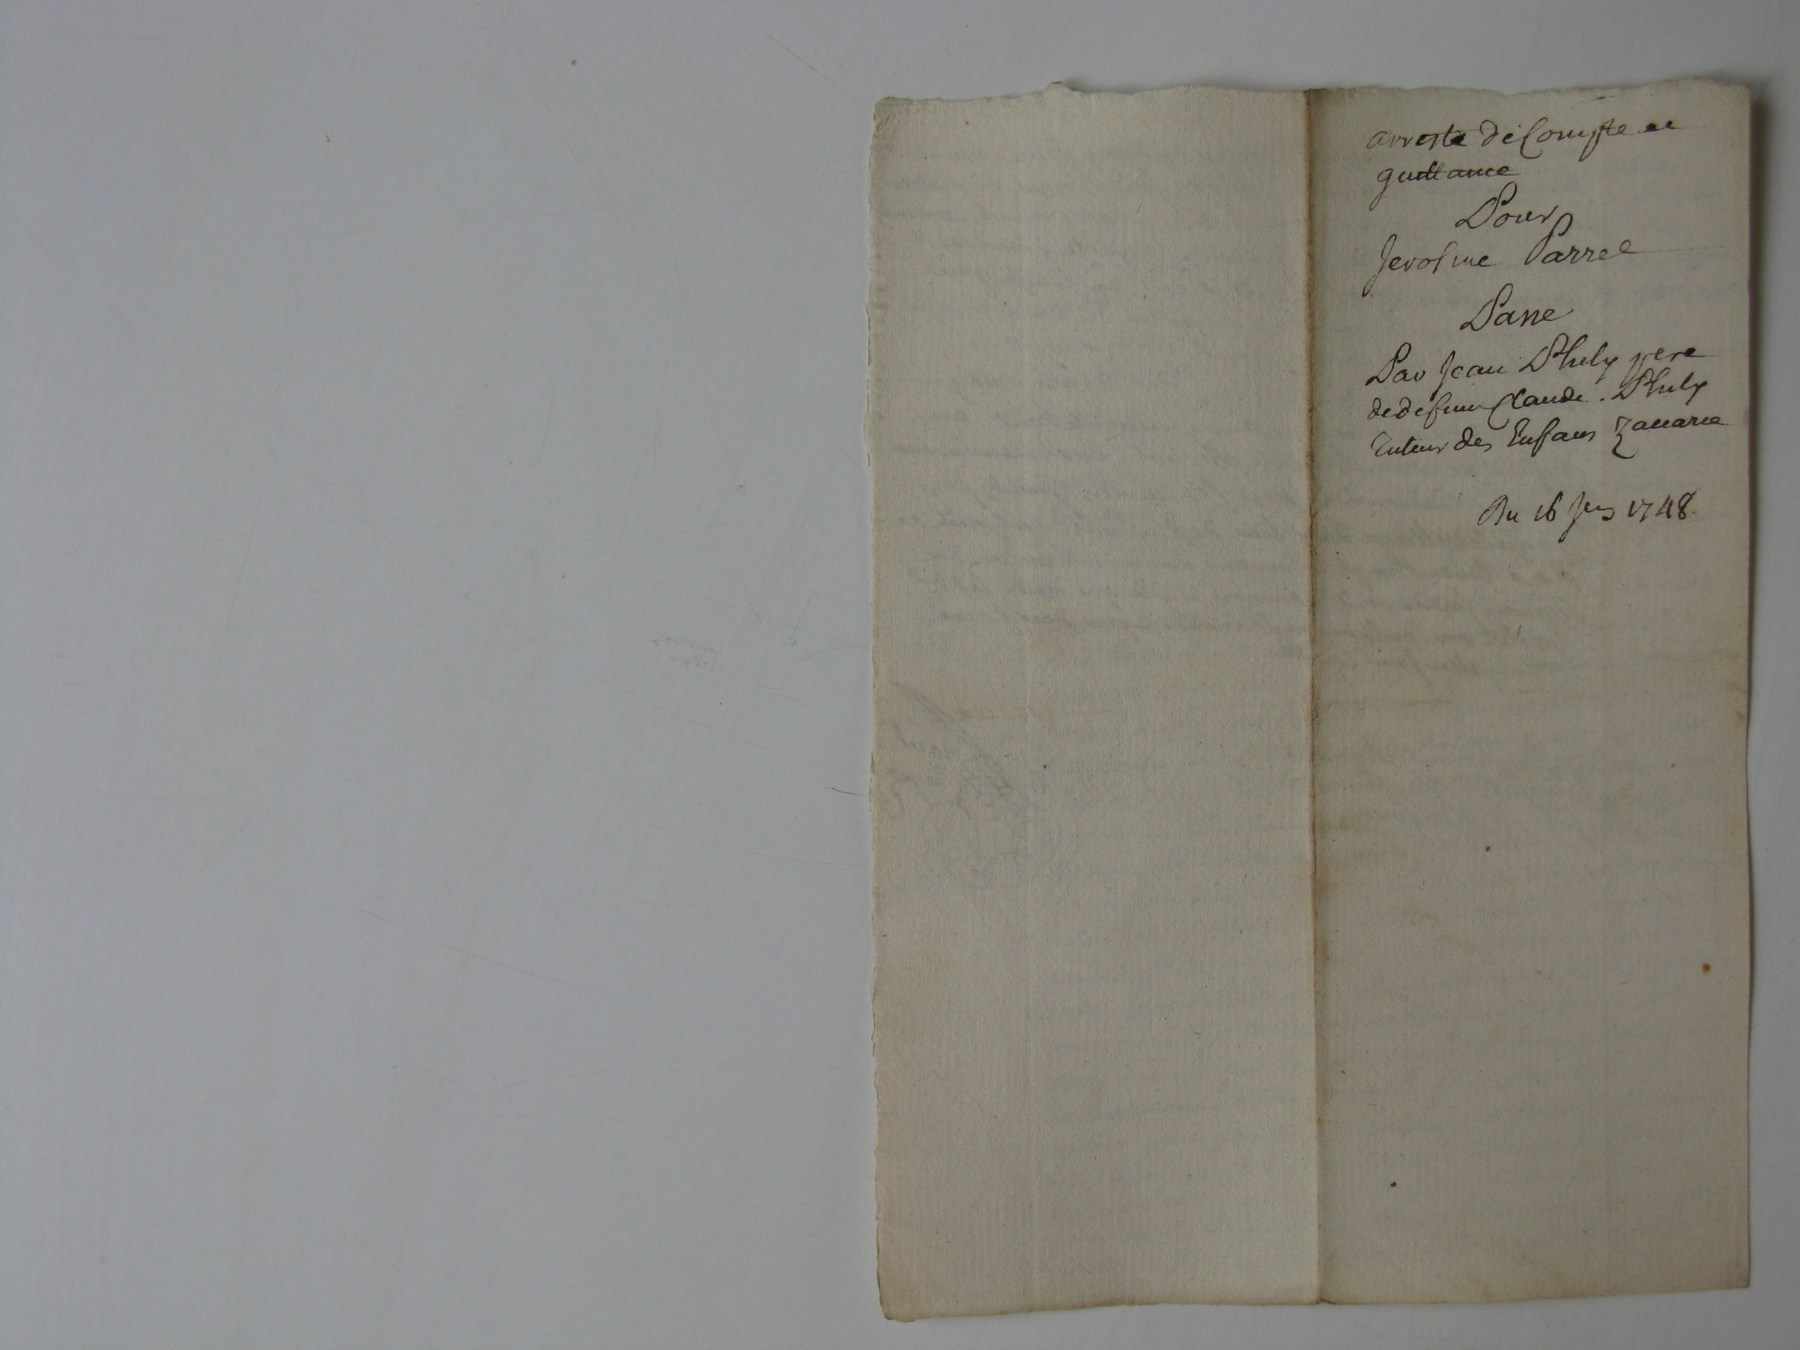 arreste de Compte et
quittance
Pour
Jerosme Parret
Passe
Par Jean Phely pere
de defunt Claude Phely
tuteur des Enfans Zacarie
Du 16 Jer 1748